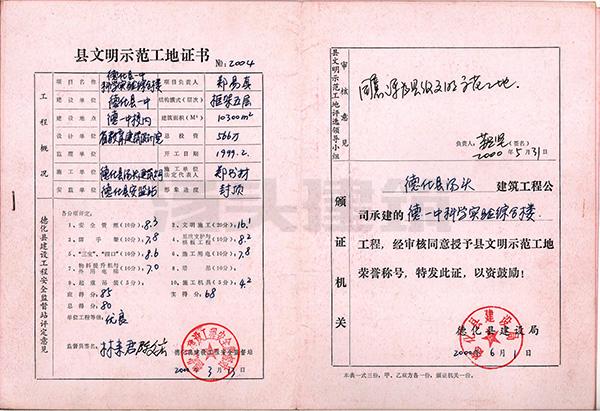 县文明示范工地证书
№: 2004
工程概况
项目名称 德化县一中科学实验综合楼 项目负责人 郑易真
建设单位 德化县一中 结构模式(层次) 框架五层
建设地点 德一中校内 建筑面积(M²) 10300m²
设计单位 总投资 566万
监理单位 开工日期 1999.2.
施工单位 法定代表人
安监单位 德化县安监站 形象进度 封顶
德化县建设工程安全监督站评定意见
各分项评定:
1、安全管理(10分) 8.3 2、文明施工(20分) 16.1
3、脚手架(10分) 7.8 8.2
5、“三宝”、“四口”(10分) 8.6 6、施工用电(10分) 7.8
7、物料提升机与外用电梯(10分) 7.0 8、塔吊(10分)
9、起重吊装(5分) 10、施工机具(5分) 4.2
应得分: 85 实得分: 68
总得分: 80
单位工程等级: 优良
监督员签名:
德化县建设工程安全监督站
2000年3月13日
县文明示范工地评选领导小组
审核意见
负责人: (签名)
2000年5月31日
颁证机关
德化县汤头 建筑工程公
司承建的 德一中科学实验综合楼
工程,经审核同意授予县文明示范工地
荣誉称号,特发此证,以资鼓励!
德化县建设局
2000年6月1日
本表一式三份,甲、乙双方各一份,颁证机关一份。
汤头建筑